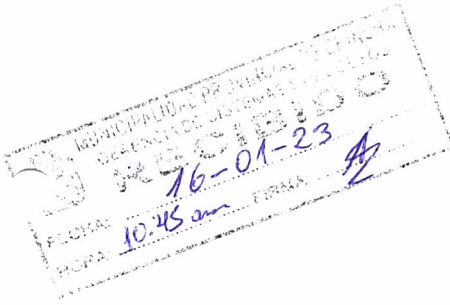 MUNICIPALIDAD PROVINCIAL DE
GERENCIA DE
RECIBIDO
FECHA: 16-01-23
HORA: 10:45 am FIRMA: